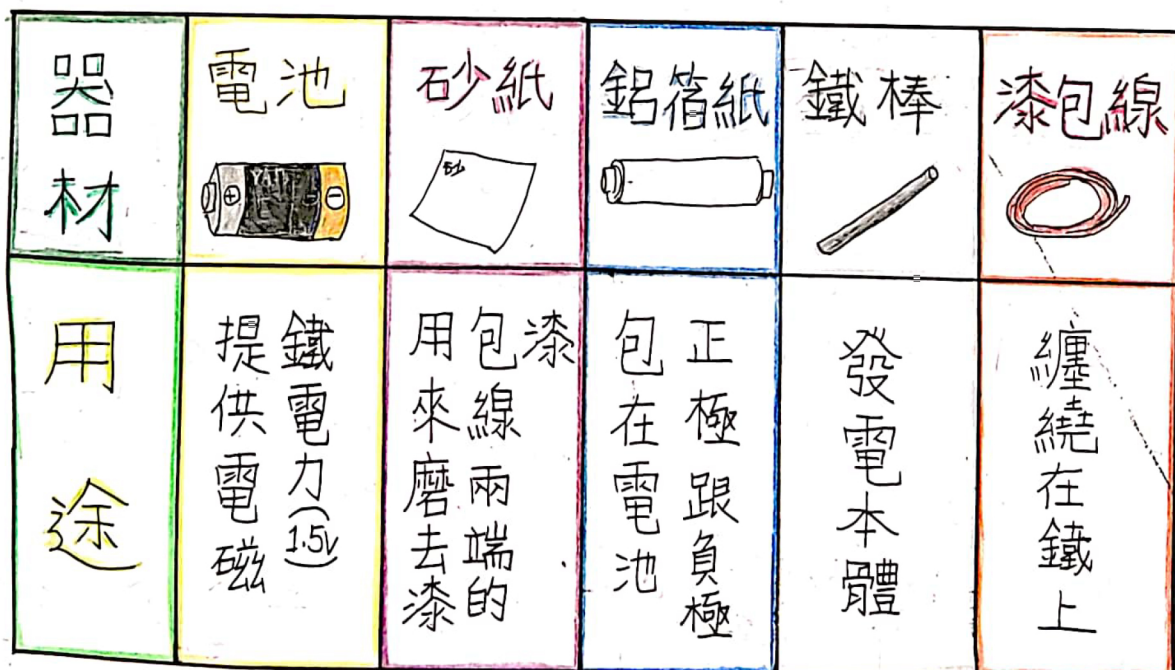 器材
電池
砂紙
鋁箔紙
鐵棒
漆包線
+
−
砂
用途
提供電磁
鐵電力(1.5v)
用來磨去漆
包線兩端的
漆
包在電池
正極跟負極
發電本體
纏繞在鐵上